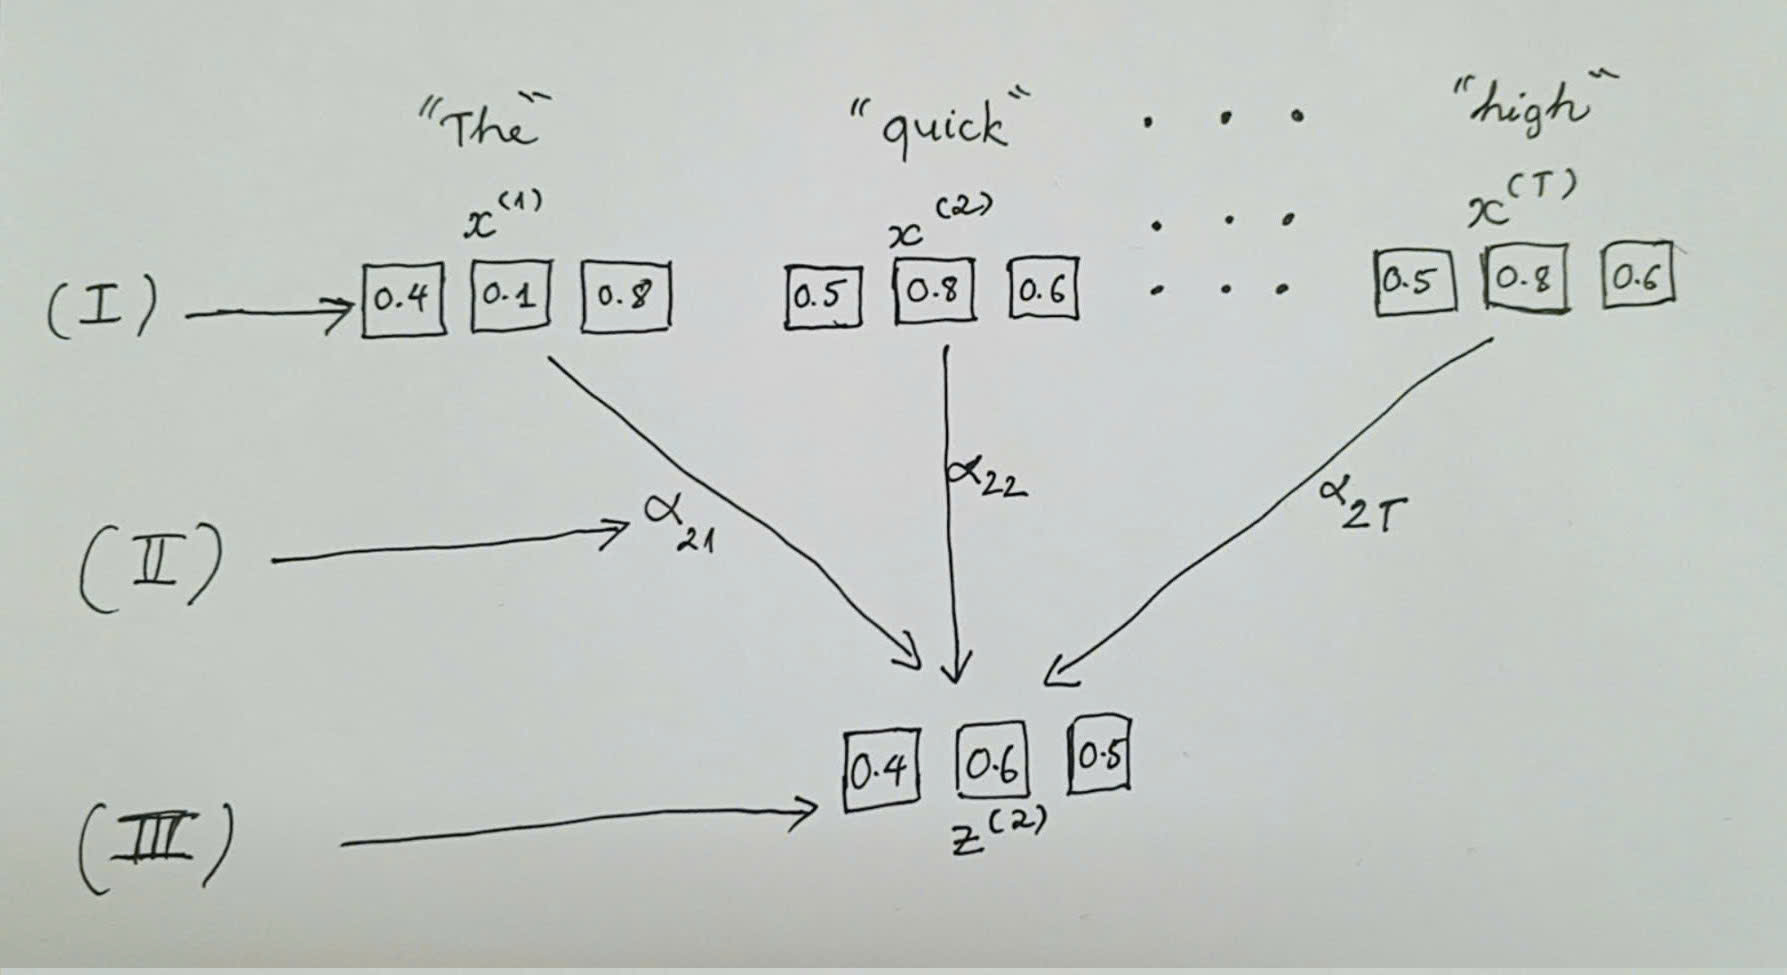 "The" "quick" . . . "high"
x^(1) x^(2) . . . x^(T)
(I) 0.4 0.1 0.8 0.5 0.8 0.6 . . . 0.5 0.8 0.6
α22
α2T
(II) α21
0.4 0.6 0.5
(III) z^(2)